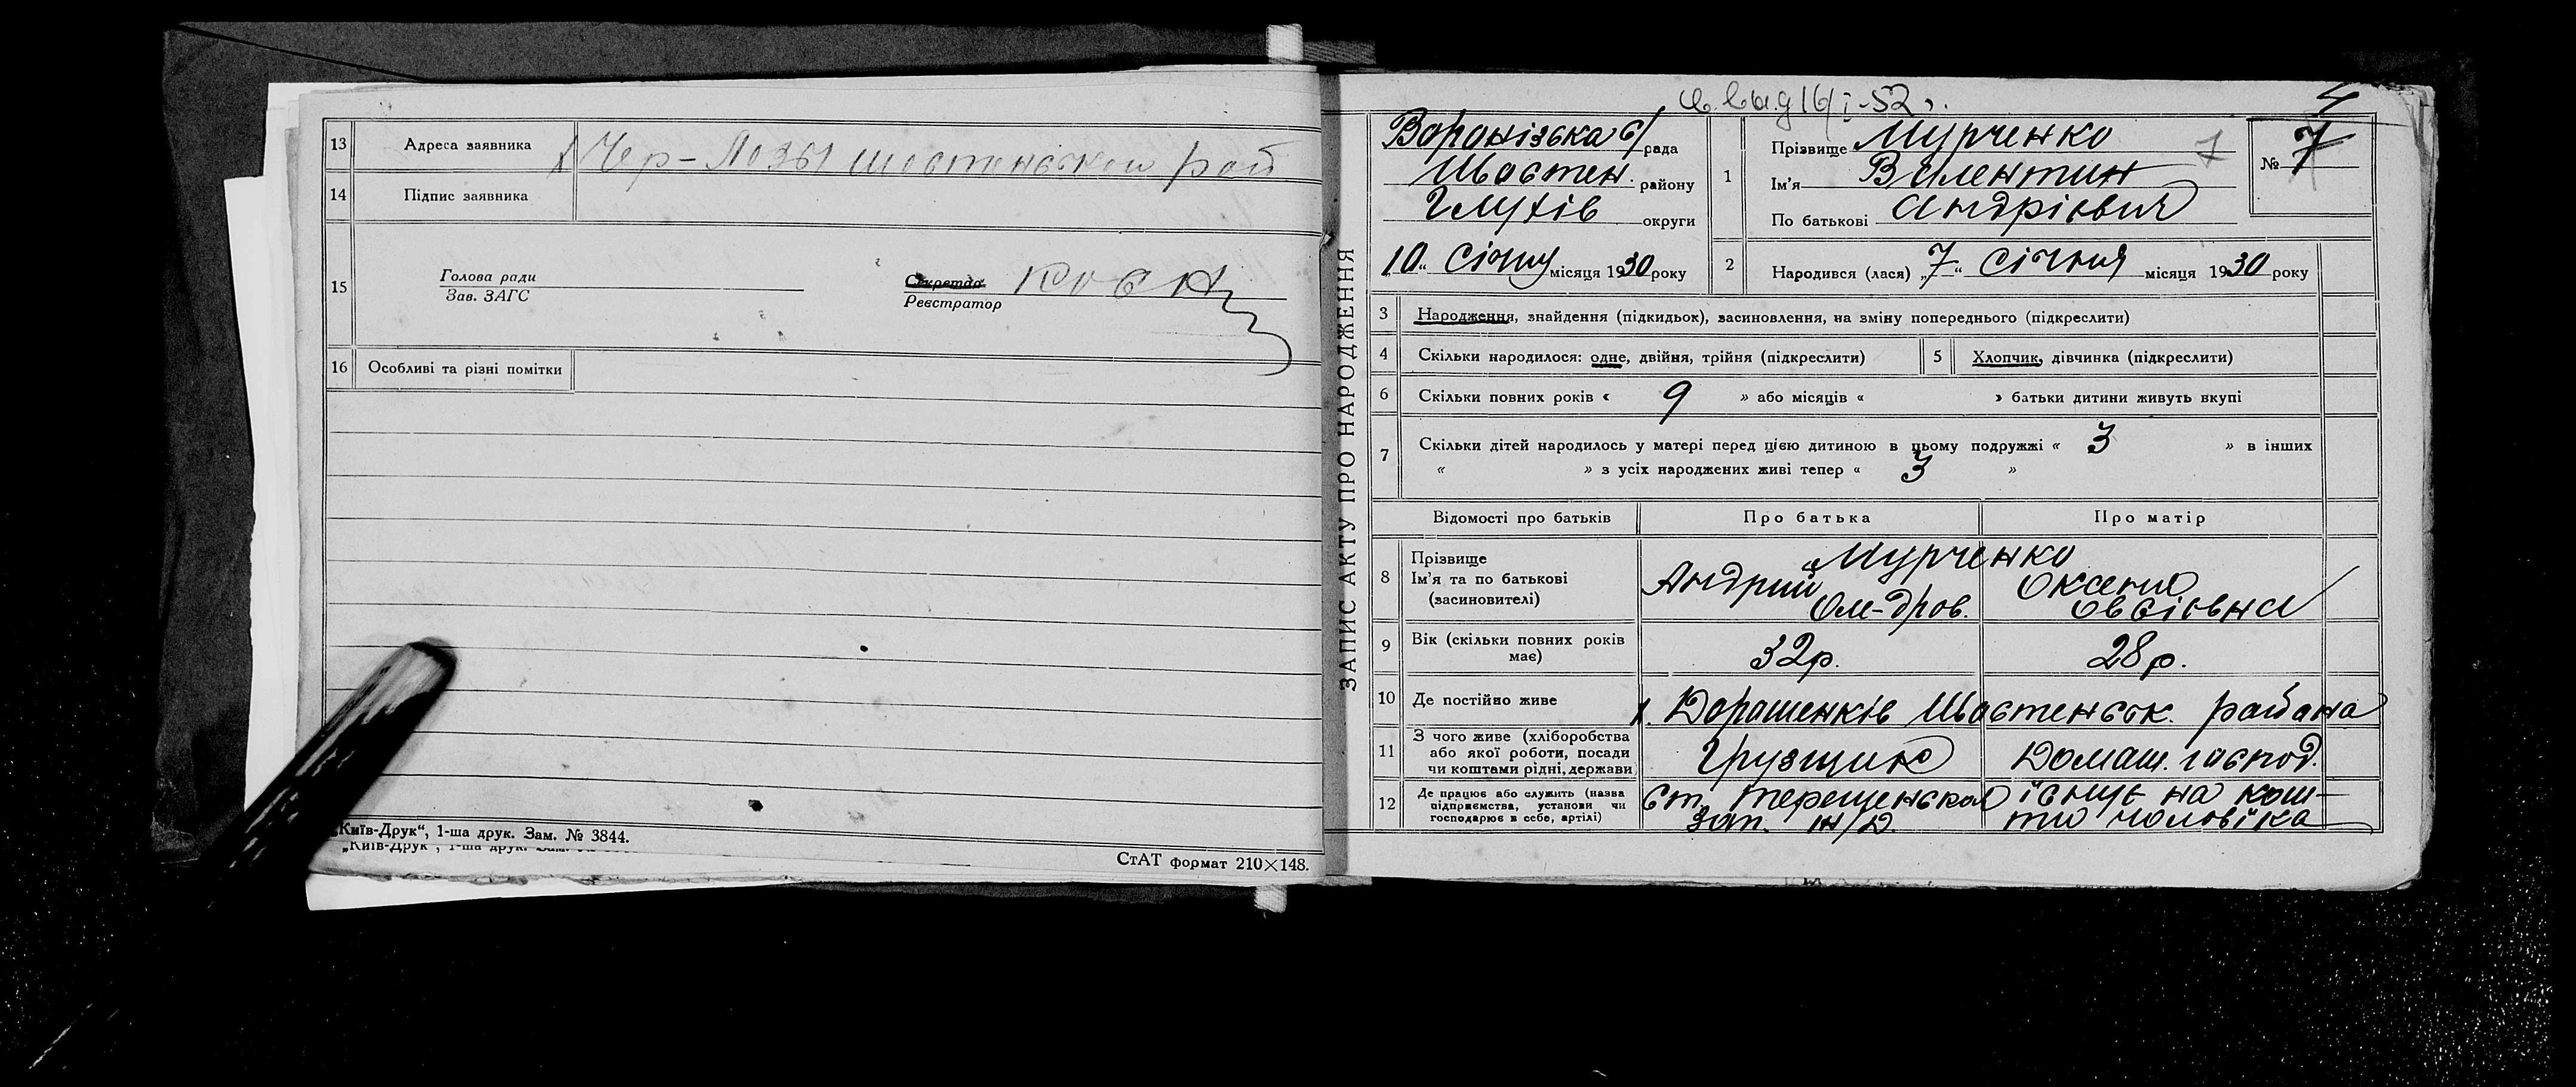 13 Адреса заявника х Чер-Лозы Шостенской рай
14 Підпис заявника
15 Голова ради
Зав. ЗАГС
Секретар
Реєстратор
16 Особливі та різні помітки
„Київ-Друк“, 1-ша друк. Зам. № 3844.
„Київ-Друк“, 1-ша друк.
СтАТ формат 210×148.
ЗАПИС АКТУ ПРО НАРОДЖЕННЯ
16/I-52 г.
4
Воронізька с/рада
Шостен. району
Глухів округи
„10“ Січня місяця 1930 року
1 Прізвище Мурченко 7
Ім'я Валентин
По батькові Андрієвич
№ 7
2 Народився (лася) „7“ Січня місяця 1930 року
3 Народження, знайдення (підкидьок), засиновлення, на зміну попереднього (підкреслити)
4 Скільки народилося: одне, двійня, трійня (підкреслити) 5 Хлопчик, дівчинка (підкреслити)
6 Скільки повних років « 9 » або місяців « » батьки дитини живуть вкупі
7 Скільки дітей народилось у матері перед цією дитиною в цьому подружжі « 3 » в інших
« » з усіх народжених живі тепер « 3 »
Відомості про батьків Про батька Про матір
8 Прізвище
Ім'я та по батькові
(засиновителі)
Мурченко
Андрий Ол-дров.
Оксенія Овсіївна
9 Вік (скільки повних років має) 32р. 28р.
10 Де постійно живе х. Дорошенків Шостенськ. района
11 З чого живе (хліборобства
або якої роботи, посади
чи коштами рідні, держави
Грузщик
Домаш. господ.
12 Де працює або служить (назва
підприємства, установи чи
господарює в себе, артілі)
Ст. Терещенская
Зап. ж/д.
існує на кош-
ти чоловіка